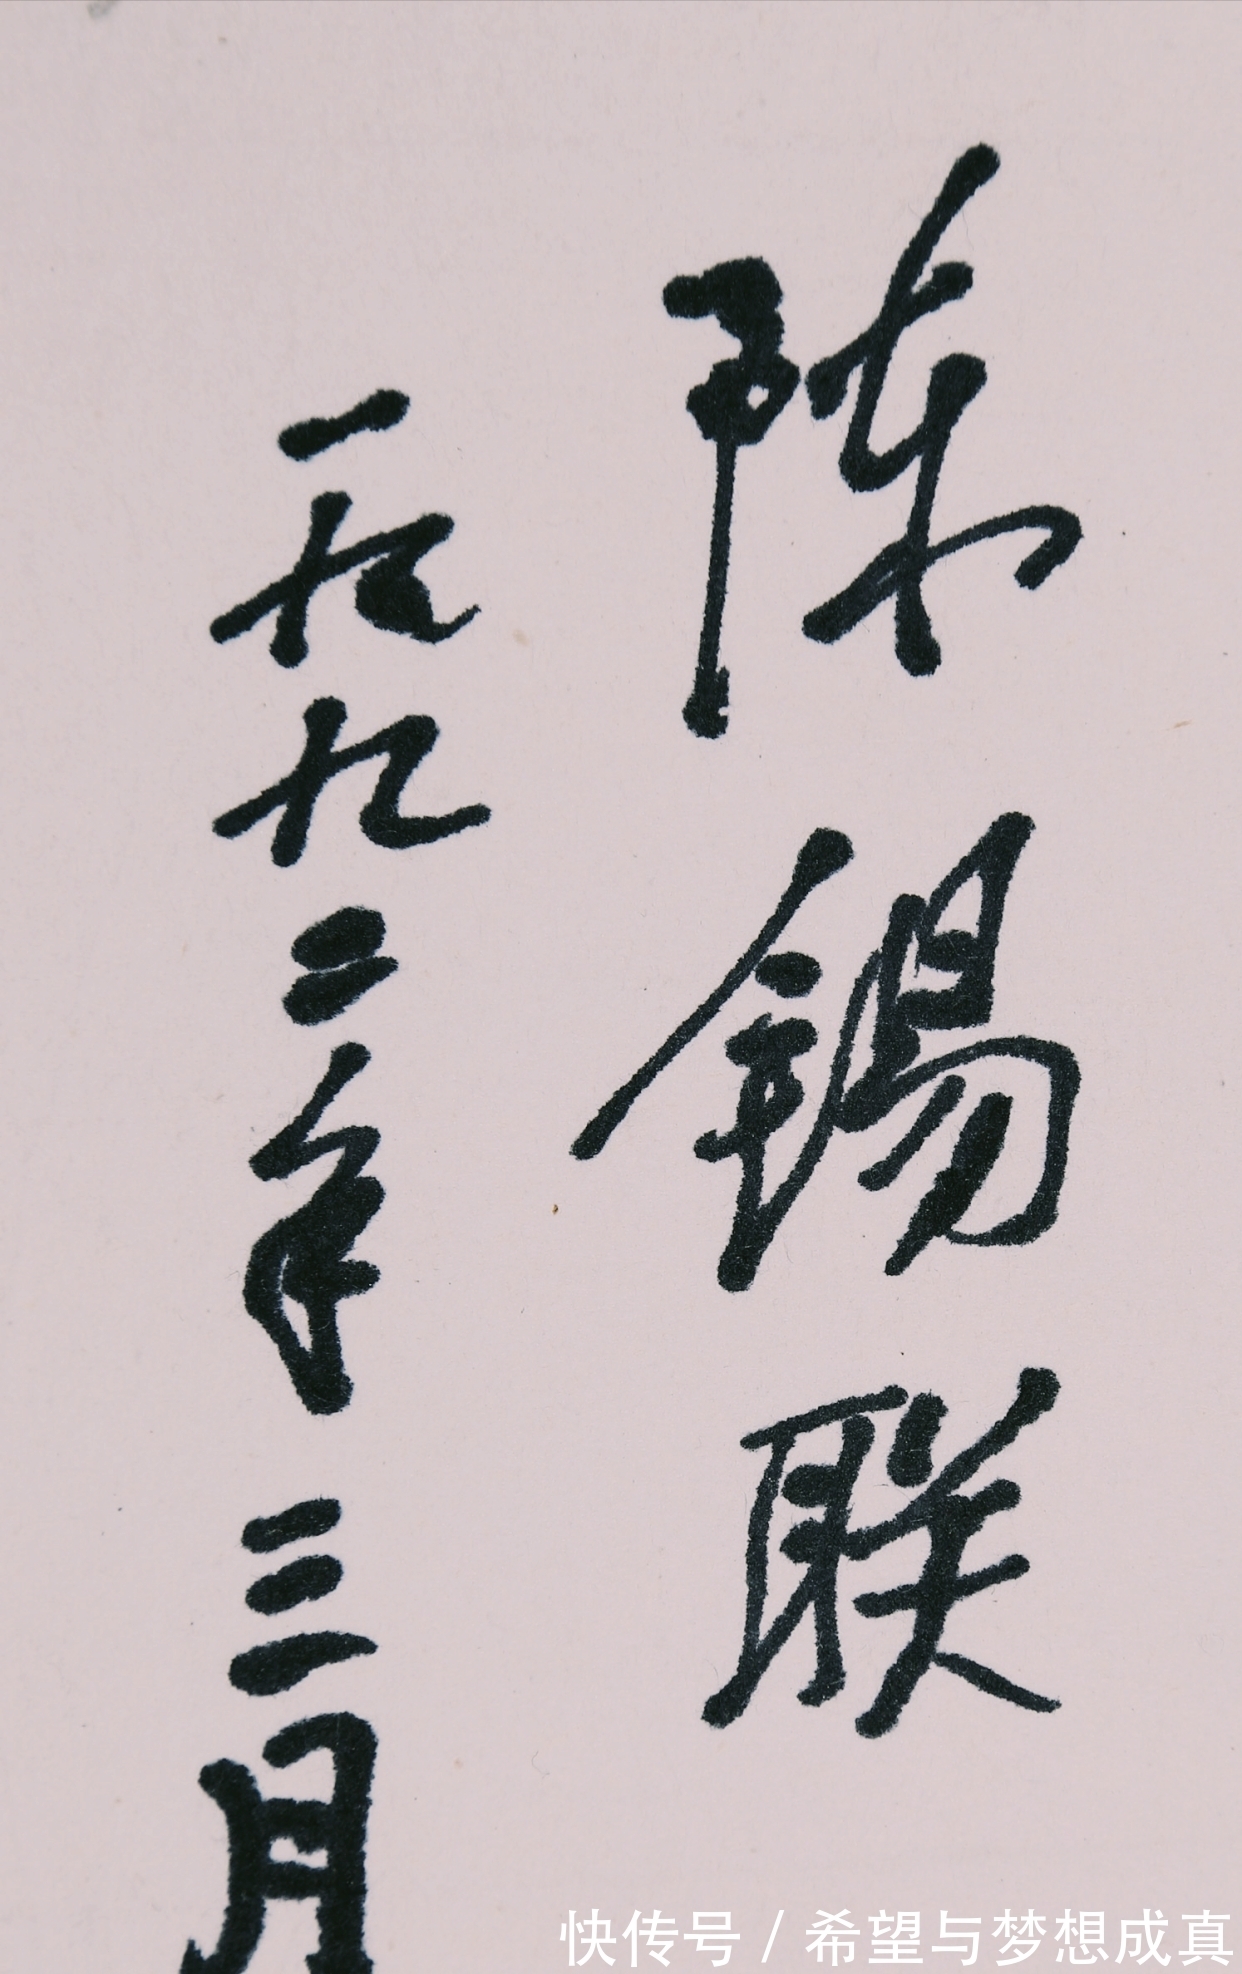 陈锡联
一九九二年三月
快传号/希望与梦想成真